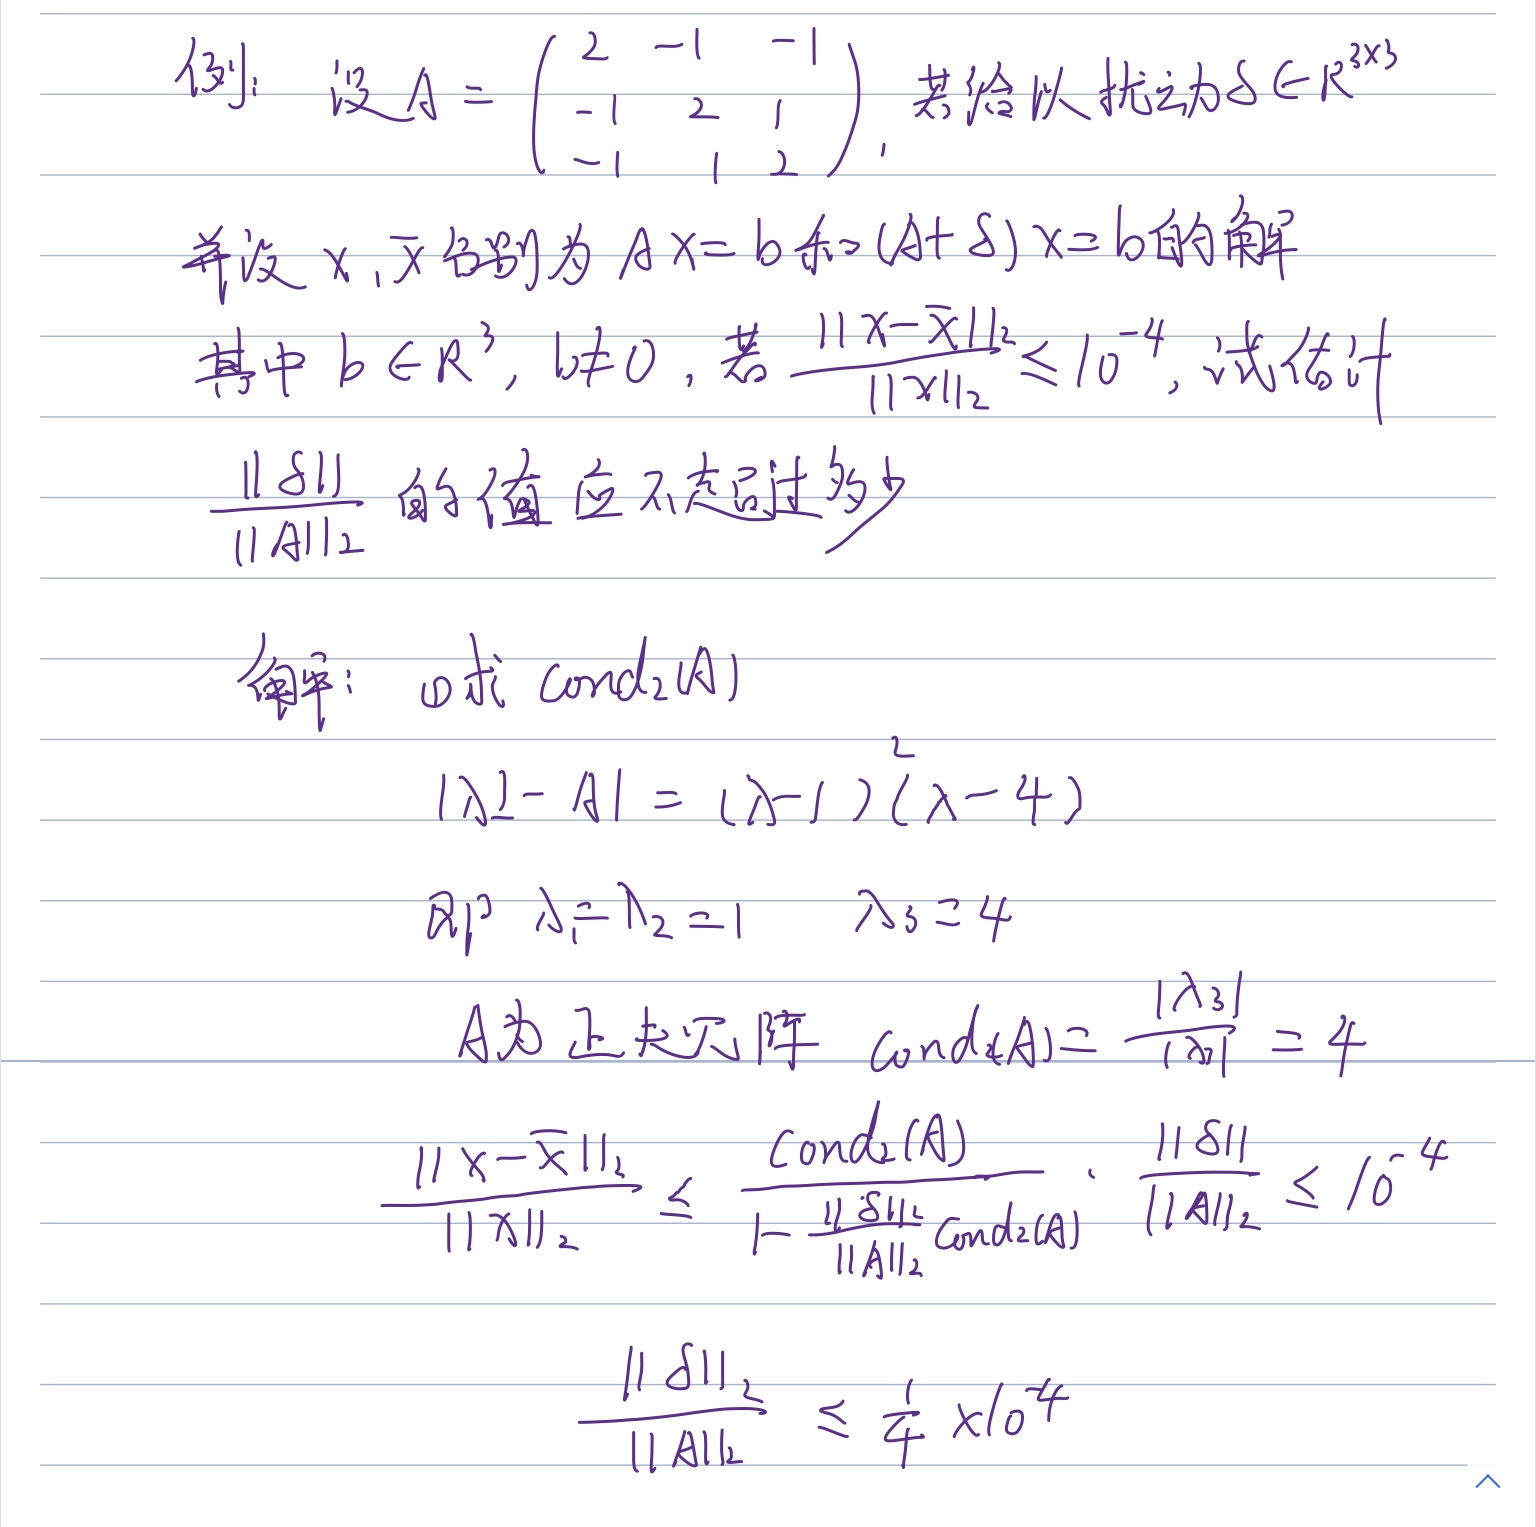 例: 设A = ( 2 -1 -1 ; -1 2 1 ; -1 1 2 ), 若给以扰动δ∈R^{3×3}
并设 x, x̄ 分别为 Ax=b 和 (A+δ)x=b 的解
其中 b∈R^3, b≠0, 若 ||x-x̄||_2 / ||x||_2 ≤ 10^{-4}, 试估计
||δ|| / ||A||_2 的值应不超过多少
解: ① 求 cond_2(A)
|λI-A| = (λ-1)^2(λ-4)
即 λ_1=λ_2=1 λ_3=4
A为正规阵 cond_2(A) = |λ_3| / |λ_1| = 4
||x-x̄||_2 / ||x||_2 ≤ cond_2(A) / (1 - ||δ||_2 / ||A||_2 cond_2(A)) · ||δ|| / ||A||_2 ≤ 10^{-4}
||δ||_2 / ||A||_2 ≤ 1/4 ×10^{-4}